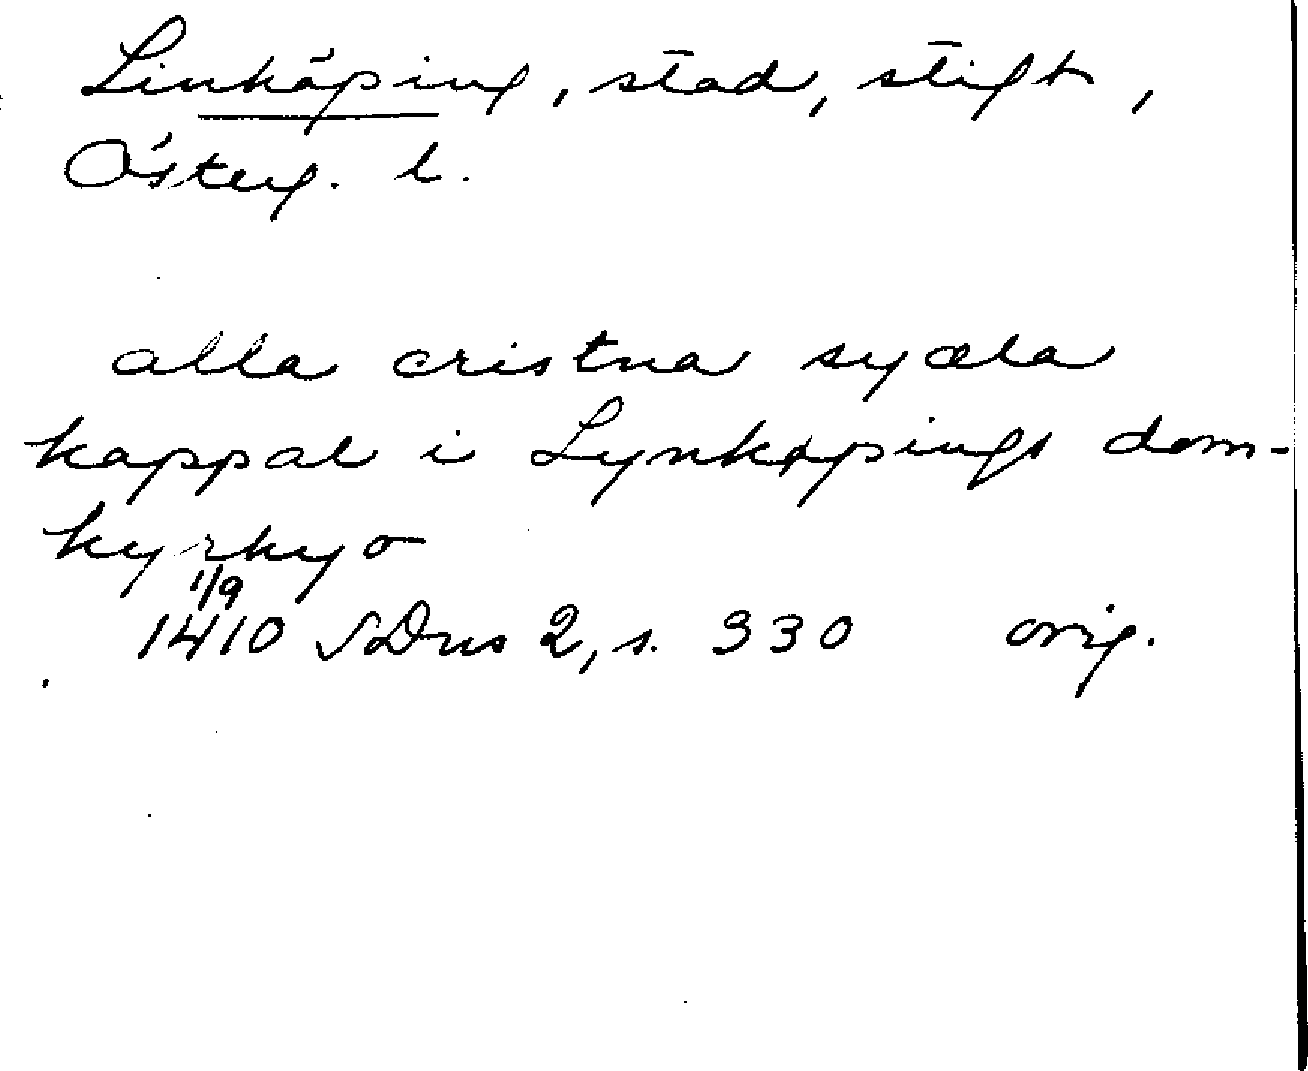 Linköping, stad, stift,
Österg. l.
alla cristna syæla
kappal i Lynkøpings dom-
kyrkyo
1/9
1410 SDns 2, s. 330 orig.